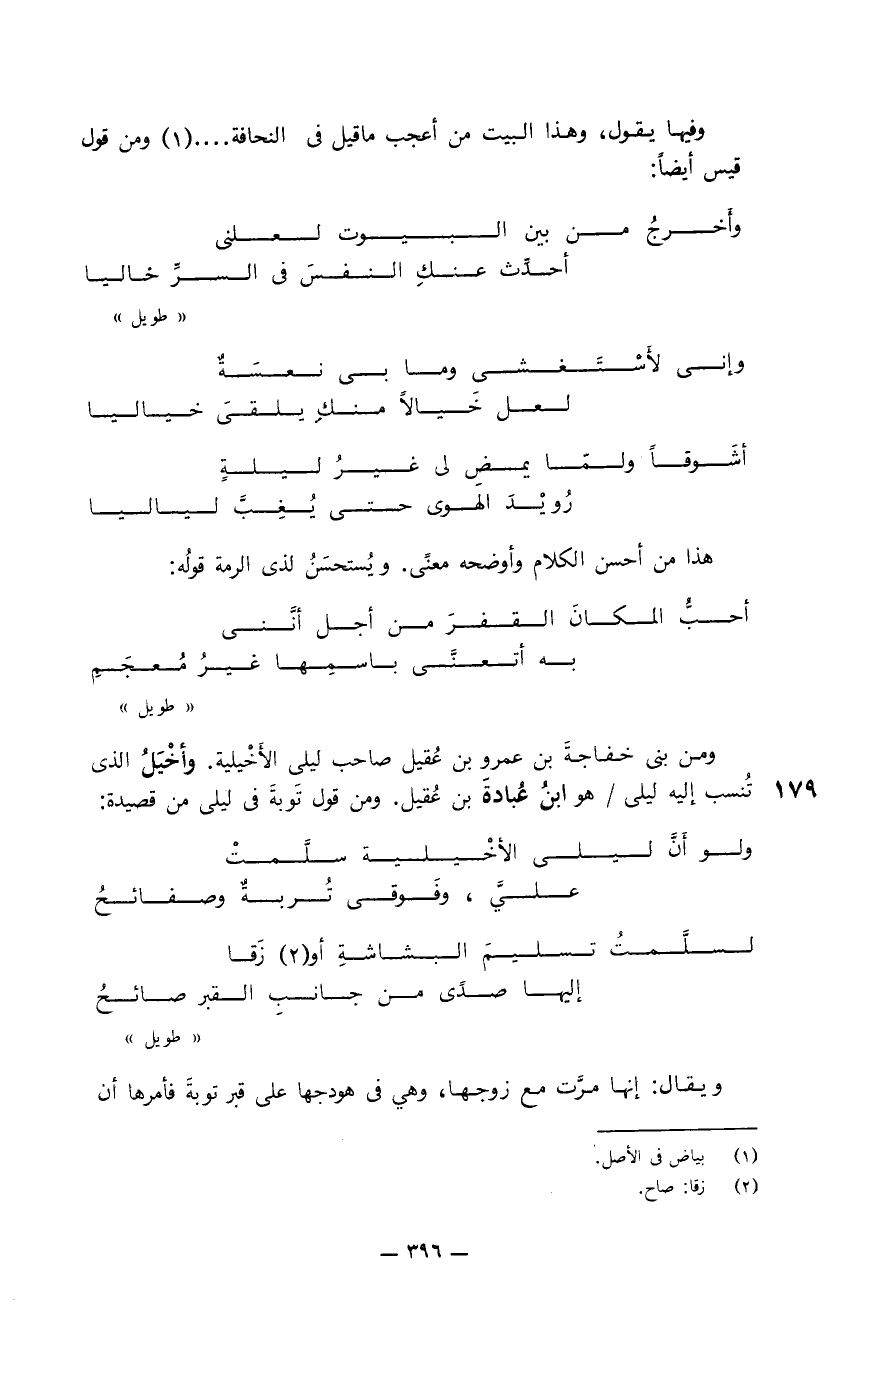 وفيها يقول، وهذا البيت من أعجب ماقيل فى النحافة....(١) ومن قول
قيس أيضاً:
وأَخرجُ من بين البيوت لعلنى
أحدَّث عنكِ النفسَ فى السرِّ خاليا
« طويل »
وإنى لأَسْتَغشى وما بى نعسَةٌ
لعل خَيالاً منكِ يلقىَ خياليا
أشَوقاً ولمّا يمضِ لى غيرُ ليلةٍ
رُويْدَ الهوى حتى يُغِبَّ لياليا
هذا من أحسن الكلام وأوضحه معنًى. ويُستحسَنُ لذى الرمة قولُه:
أحبُّ المكانَ القفرَ من أجل أنَّنى
به أتعنَّى باسمِها غيرُ مُعجَمِ
« طويل »
ومن بنى خفاجةَ بن عمرو بن عُقيل صاحب ليلى الأَخْيلية. وأخْيَلُ الذى
١٧٩ تُنسب إليه ليلى / هو ابنُ عُبادةَ بن عُقيل. ومن قول تَوبةَ فى ليلى من قصيدة:
ولو أنَّ ليلى الأخْيلية سلَّمتْ
علىَّ ، وفَوقى تُربةٌ وصفائحُ
لسلَّمتُ تسليمَ البشاشةِ أو(٢) زَقا
إليها صدًى من جانبِ القبر صائحُ
« طويل »
ويقال: إنها مرَّت مع زوجها، وهي فى هودجها على قبر توبةَ فأمرها أن
(١) بياض فى الأصل.
(٢) زقا: صاح.
— ٣٩٦ —